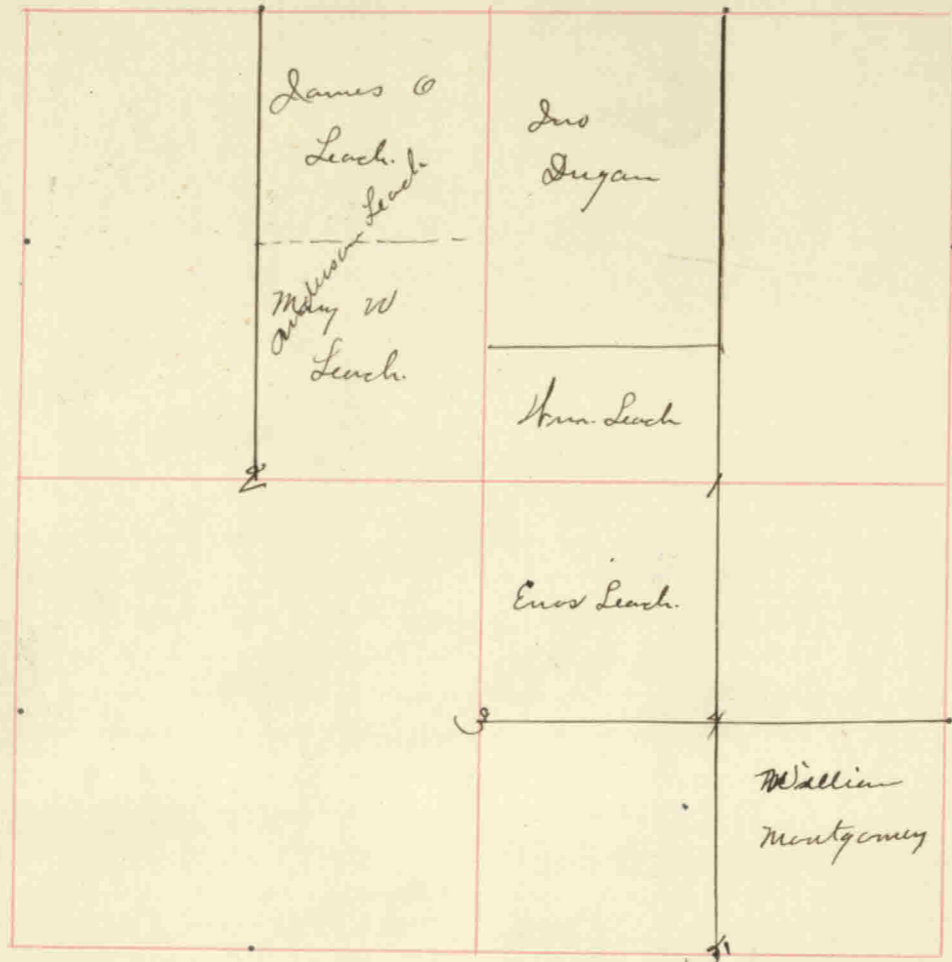 James O
Leach.
Anderson Leach
Mary W
Leach.
Jno
Dugan
Wm. Leach
2
1
Enos Leach.
3
4
William
Montgomery
5